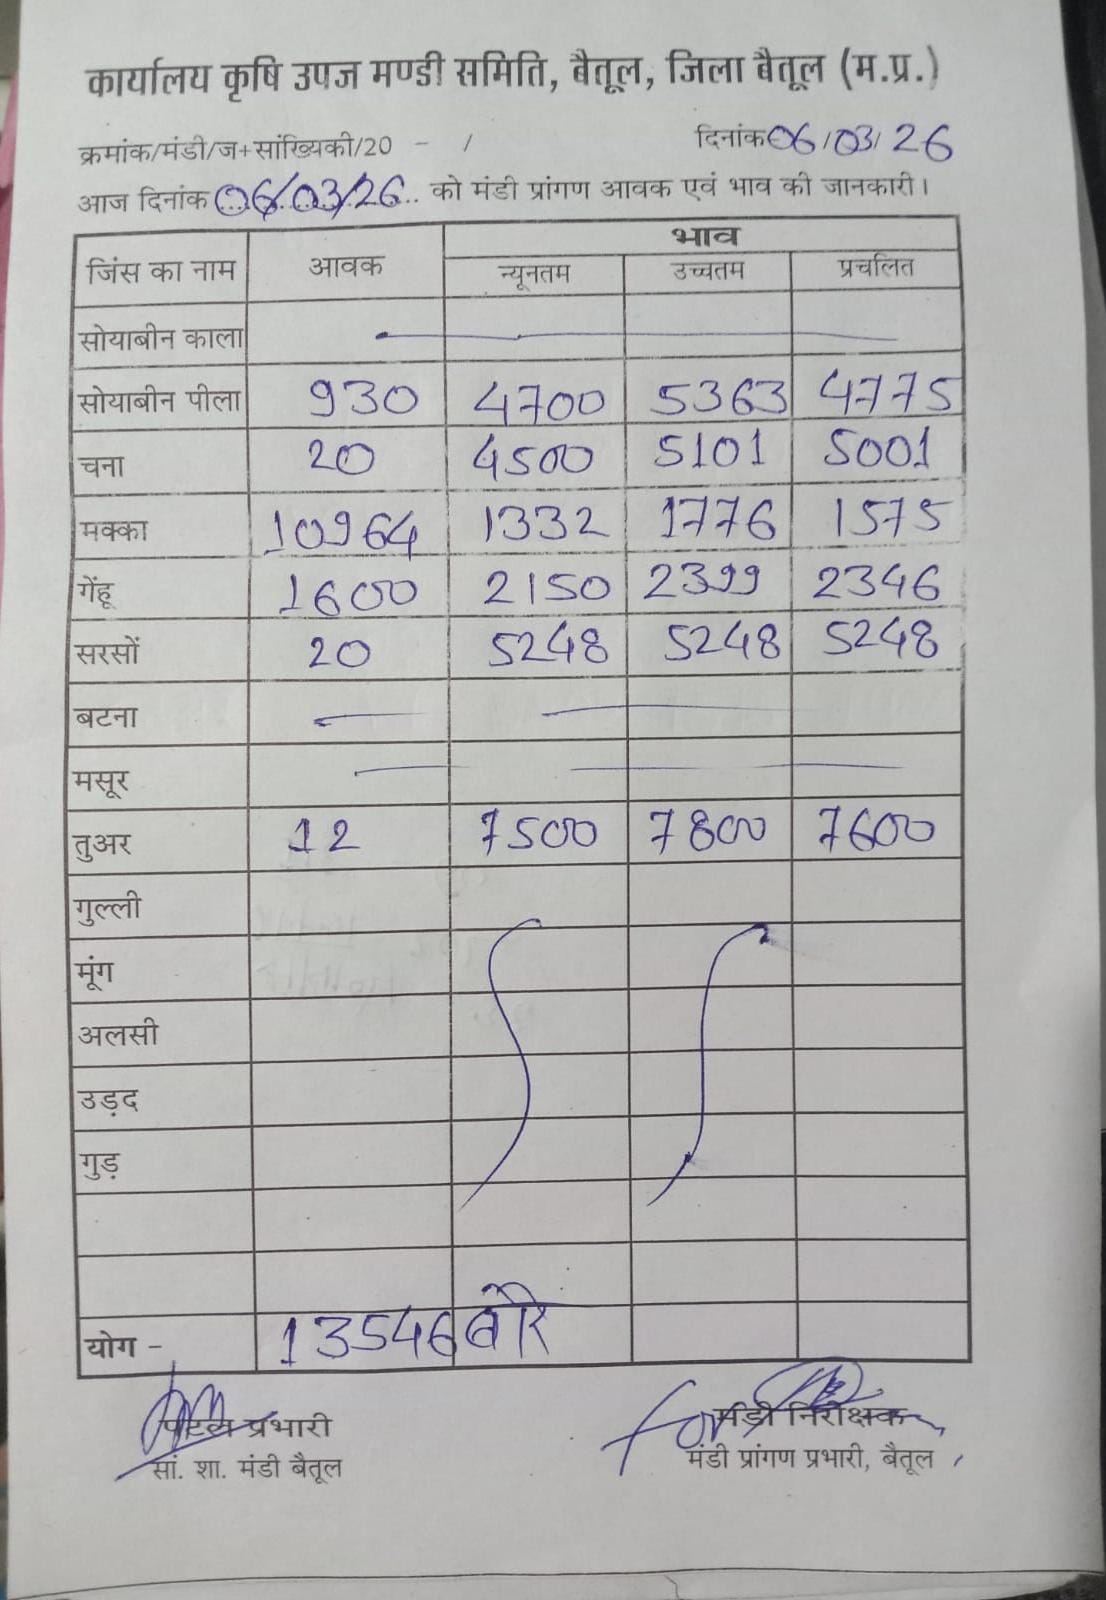 कार्यालय कृषि उपज मण्डी समिति, बैतूल, जिला बैतूल (म.प्र.)
क्रमांक/मंडी/ज+सांख्यिकी/20 - / दिनांक 06/03/26
आज दिनांक 06/03/26.. को मंडी प्रांगण आवक एवं भाव की जानकारी।
जिंस का नाम आवक भाव
न्यूनतम उच्चतम प्रचलित
सोयाबीन काला —
सोयाबीन पीला 930 4700 5363 4775
चना 20 4500 5101 5001
मक्का 10964 1332 1776 1575
गेंहू 1600 2150 2399 2346
सरसों 20 5248 5248 5248
बटना — —
मसूर — —
तुअर 12 7500 7800 7600
गुल्ली
मूंग
अलसी
उड़द
गुड़
योग - 13546 बोरे
प्रभारी for मंडी निरीक्षक
सां. शा. मंडी बैतूल मंडी प्रांगण प्रभारी, बैतूल